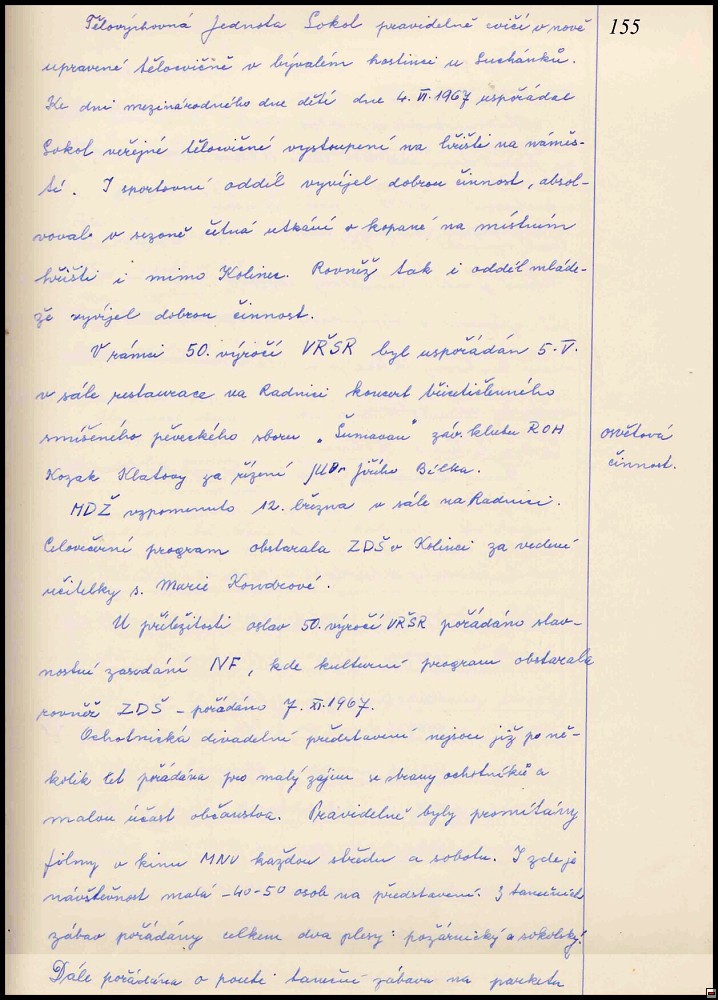 155
Tělovýchovná Jednota Sokol pravidelně cvičí v nově
upravené tělocvičně v bývalém hostinci u Suchánků.
Ke dni mezinárodného dne dětí dne 4. VI. 1967 uspořádal
Sokol veřejné tělocvičné vystoupení na hřišti na náměs-
tí. I sportovní oddíl vyvíjel dobrou činnost, absol-
voval v sezoně četná utkání v kopané na místním
hřišti i mimo Kolinec. Rovněž tak i oddíl mláde-
že vyvíjel dobrou činnost.
V rámci 50. výročí VŘSR byl uspořádán 5. V.
v sále restaurace na Radnici koncert třicetičlenného
smíšeného pěveckého sboru „Šumavan" záv. klubu ROH
Kozak Klatovy za řízení JUDr Jiřího Bělka.
osvětová
činnost.
MDŽ vzpomenuto 12. března v sále na Radnici.
Celovečerní program obstarala ZDŠ v Kolinci za vedení
učitelky s. Marie Kondrové.
U příležitosti oslav 50. výročí VŘSR pořádáno slav-
nostní zasedání NF, kde kulturní program obstarala
rovněž ZDŠ - pořádáno 7. XI. 1967.
Ochotnická divadelní představení nejsou již po ně-
kolik let pořádána pro malý zájem se strany ochotníků a
malou účast občanstva. Pravidelně byly promítány
filmy v kinu MNV každou středu a sobotu. I zde je
návštěvnost malá - 40-50 osob na představení. Z tanečních
zábav pořádány celkem dva plesy: požárnický a sokolský.
Dále pořádána o pouti taneční zábava na parketu